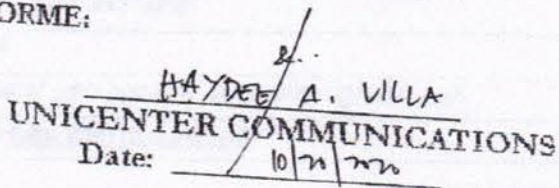 ORME:
HAYDEE A. VILLA
UNICENTER COMMUNICATIONS
Date: 10/21/2020